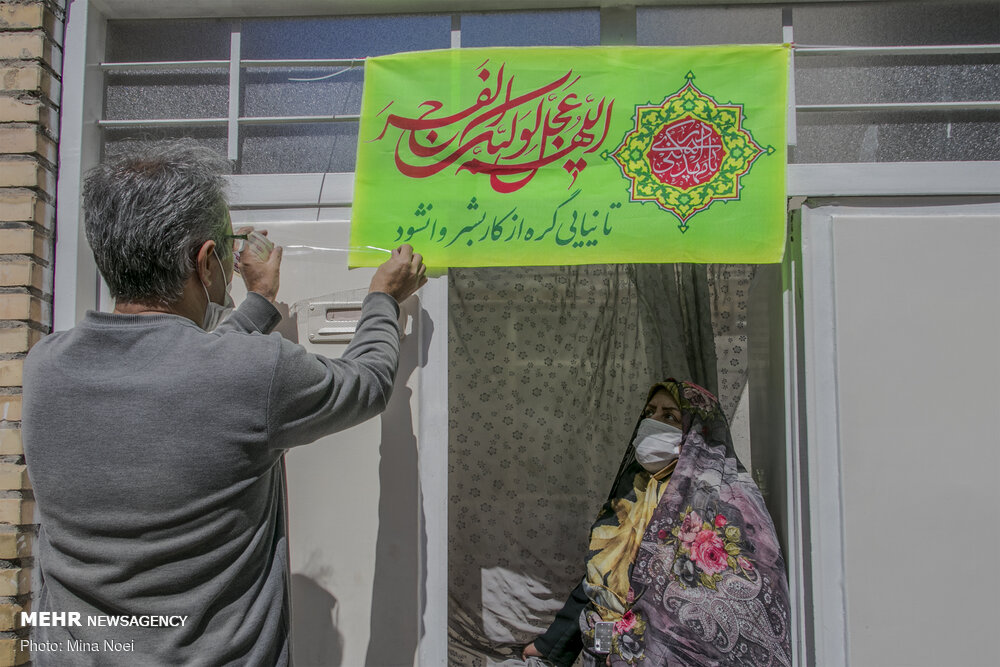 اللهم عجل لولیک الفرج
یا مهدی
تا نیایی گره از کار بشر وا نشود
MEHR NEWSAGENCY
Photo: Mina Noei